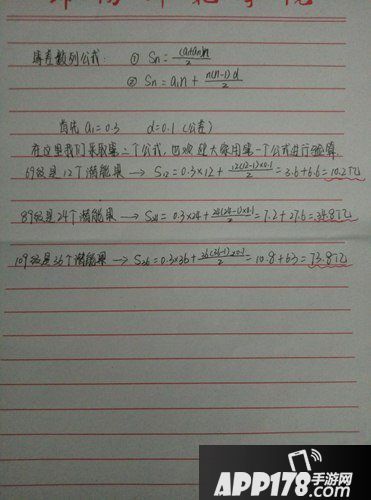 等差数列公式: ① Sn=(a1+an)n/2
② Sn=a1n+n(n-1)d/2
首先 a1=0.3 d=0.1(公差)
在这里我们采取第二个公式,也欢迎大家用第一个公式进行验算.
69级是12个潜能果 → S12=0.3×12+12(12-1)×0.1/2=3.6+6.6=10.2亿
89级是24个潜能果 → S24=0.3×24+24(24-1)×0.1/2=7.2+27.6=34.8亿
109级是36个潜能果 → S36=0.3×36+36(36-1)×0.1/2=10.8+63=73.8亿
APP178手游网
.com